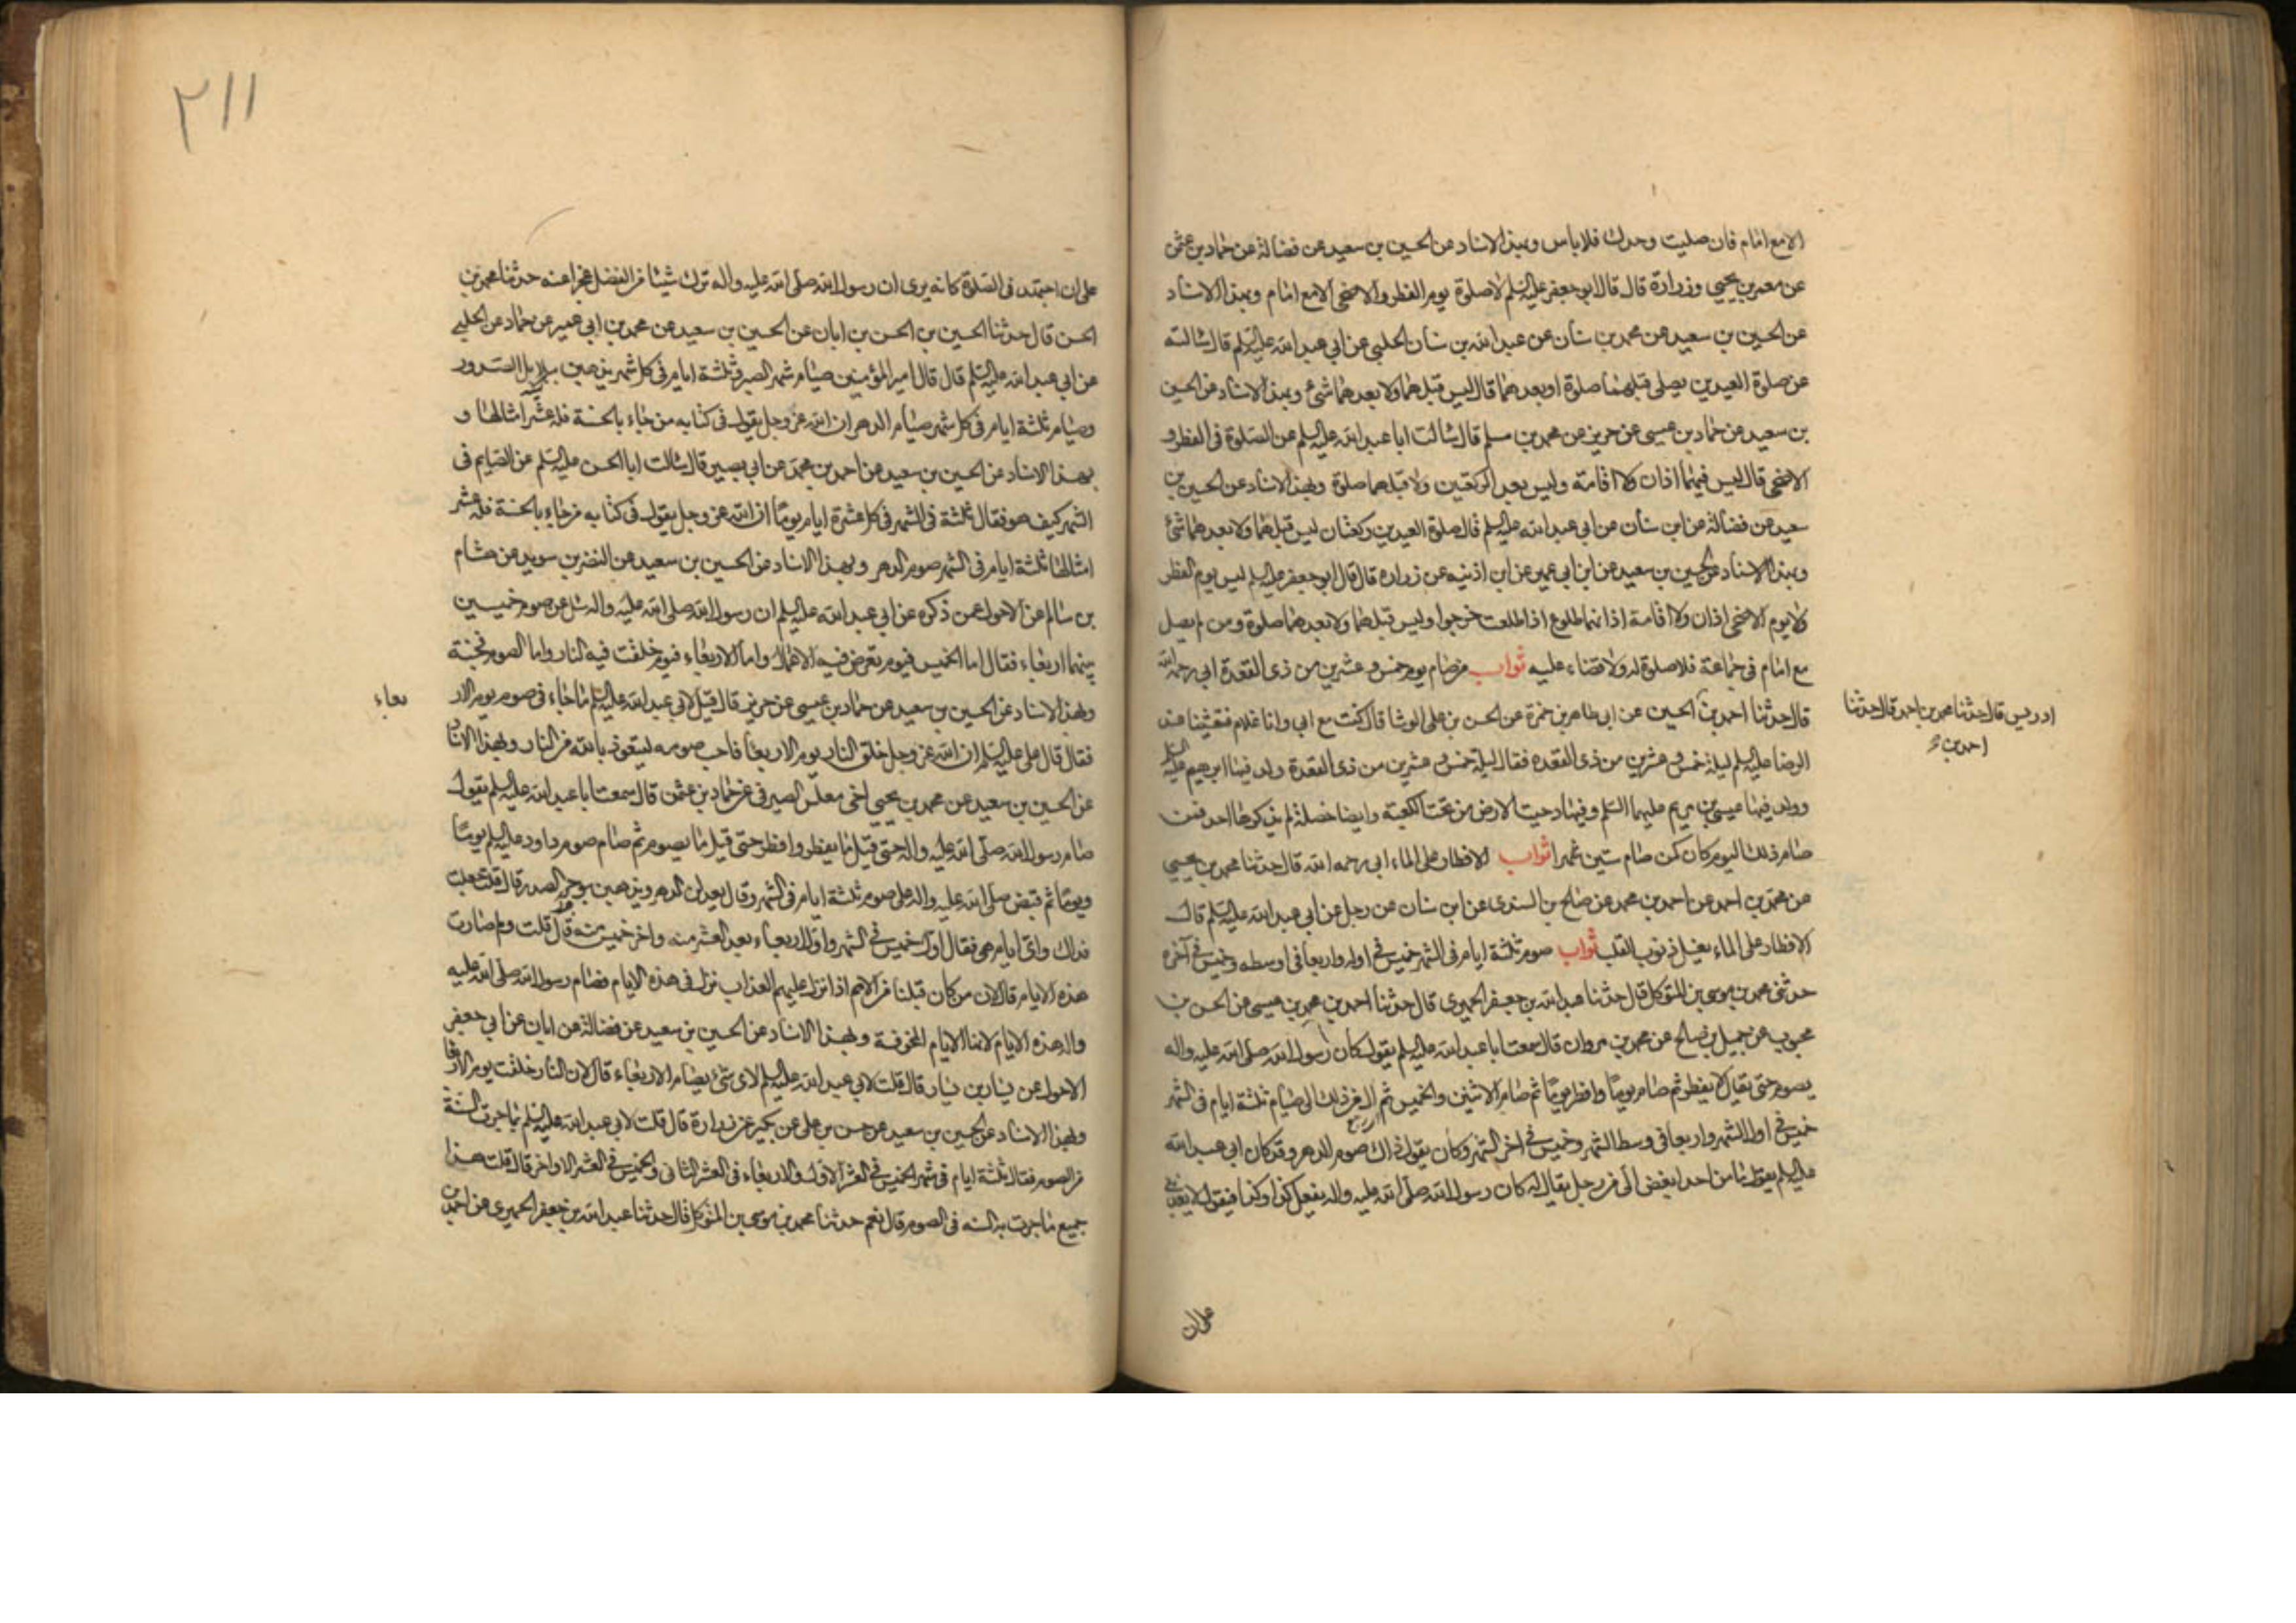 الا مع امام فان صليت وحدك فلا باس وبهذا الاسناد عن الحسين بن سعيد عن فضالة عن حماد بن عثمن
عن معمر بن يحيى وزرارة قال قال ابو جعفر عليه السلم لا صلوة يوم الفطر والاضحى الا مع امام وبهذا الاسناد
عن الحسين بن سعيد عن محمد بن سنان عن عبد الله بن سنان الحلبي عن ابي عبد الله عليه السلم قال سالته
عن صلوة العيدين يصلى قبلهما صلوة او بعدهما قال ليس قبلهما ولا بعدهما شئ وبهذا الاسناد عن الحسين
بن سعيد عن حماد بن عيسى عن حريز عن محمد بن مسلم قال سالت ابا عبد الله عليه السلم عن الصلوة في الفطر و
الاضحى قال ليس فيهما اذان ولا اقامة وليس بعد الركعتين ولا قبلهما صلوة وبهذا الاسناد عن الحسين بن
سعيد عن فضالة عن ابن سنان عن ابي عبد الله عليه السلم قال صلوة العيدين ركعتان ليس قبلهما ولا بعدهما شئ
وبهذا الاسناد عن الحسين بن سعيد عن ابن ابي عمير عن ابن اذينه عن زراره قال قال ابو جعفر عليه السلم ليس يوم الفطر
ولا يوم الاضحى اذان ولا اقامة اذانهما طلوع اذا طلعت خرجوا وليس قبلهما ولا بعدهما صلوة ومن لم يصل
مع امام في جماعة فلا صلوة له ولا قضاء عليه ثواب من صام يوم خمس وعشرين من ذي القعدة ابي رحمه الله
قال حدثنا احمد بن الحسين عن ابي طاهر بن حمزة عن الحسن بن علي الوشا قال كنت مع ابي وانا غلام فتعشينا عند
ادريس قال حدثنا محمد بن احمد قال حدثنا
احمد بن
الرضا عليه السلم ليلة خمس وعشرين من ذي القعده فقال ليلة خمس وعشرين من ذي القعدة ولد فيها ابرهيم عليه السلم
وولد فيها عيسى بن مريم عليهما السلم وفيها دحيت الارض من تحت الكعبة وايضا خصلة لم يذكرها احد فمن
صام ذلك اليوم كان كمن صام ستين شهرا ثواب الافطار على الماء ابي رحمه الله قال حدثنا محمد بن يحيى
عن محمد بن احمد عن احمد بن محمد عن صالح بن السندي عن ابن سنان عن رجل عن ابي عبد الله عليه السلم قال
الافطار على الماء يغسل ذنوب القلب ثواب صوم ثلثة ايام في الشهر خميس في اوله واربعا في اوسطه وخميس في آخره
حدثني محمد بن موسى بن المتوكل قال حدثنا عبد الله بن جعفر الحميري قال حدثنا احمد بن محمد بن عيسى عن الحسن بن
محبوب عن جميل بن صالح عن محمد بن مروان قال سمعت ابا عبد الله عليه السلم يقول كان رسول الله صلى الله عليه واله
يصوم حتى يقال لا يفطر ثم صام يوما وافطر يوما ثم صام الاثنين والخميس ثم آل من ذلك الى صيام ثلثة ايام في الشهر
خميس في اول الشهر واربعا في وسط الشهر وخميس في اخر الشهر وكان يقول ذلك صوم الدهر وقد كان ابي عبد الله
عليه السلم يقول ما من احد ابغض الي من رجل يقال له كان رسول الله صلى الله عليه واله يفعل كذا وكذا فيقول لا يعذبني
على ان
٢١١
على ان اجتهد في الصلوة كانه يرى ان رسول الله صلى الله عليه واله ترك شيئا من الفضل عجزا عنه حدثنا محمد بن
الحسن قال حدثنا الحسين بن الحسن بن ابان عن الحسين بن سعيد عن محمد بن ابي عمير عن حماد عن الحلبي
عن ابي عبد الله عليه السلم قال قال امير المؤمنين صيام شهر الصبر وثلثة ايام في كل شهر يذهبن ببلابل الصدور
وصيام ثلثة ايام في كل شهر صيام الدهر ان الله عز وجل يقول في كتابه من جاء بالحسنة فله عشر امثالها و
بهذا الاسناد عن الحسين بن سعيد عن احمد بن محمد عن ابي بصير قال سالت ابا الحسن عليه السلم عن الصايم في
الشهر كيف هو فقال ثلثة في الشهر في كل عشرة ايام يوما ان الله عز وجل يقول في كتابه من جاء بالحسنة فله عشر
امثالها ثلثة ايام في الشهر صوم الدهر وبهذا الاسناد عن الحسين بن سعيد عن النضر بن سويد عن هشام
بن سالم عن الاحول عمن ذكره عن ابي عبد الله عليه السلم ان رسول الله صلى الله عليه واله سئل عن صوم خميسين
بينهما اربعاء فقال اما الخميس فيوم تعرض فيه الاعمال واما الاربعاء فيوم خلقت فيه النار واما الصوم فجنة
وبهذا الاسناد عن الحسين بن سعيد عن حماد بن عيسى عن حريز قال قيل لابي عبد الله عليه السلم ما جاء في صوم يوم الار
بعاء
فقال قال علي عليه السلم ان الله عز وجل خلق النار يوم الاربعا فاحب صومه ليتعوذ بالله من النار وبهذا الاسناد
عن الحسين بن سعيد عن محمد بن يحيى اخي مغلس الصيرفي عن حماد بن عثمن قال سمعت ابا عبد الله عليه السلم يقول
صام رسول الله صلى الله عليه واله حتى قيل ما يفطر وافطر حتى قيل ما يصوم ثم صام صوم داود عليه السلم يوما
ويوما ثم قبض صلى الله عليه واله على صوم ثلثة ايام في الشهر وقال يعدلن الدهر ويذهبن بوحر الصدر قال قلت جعلت
فداك واي ايام هي فقال اول خميس في الشهر واول اربعاء بعد العشر منه واخر خميس منه قال قلت ولم صارت
هذه الايام قال لان من كان قبلنا من الامم اذا نزل عليهم العذاب نزل في هذه الايام فصام رسول الله صلى الله عليه
واله هذه الايام لانها الايام المخوفة وبهذا الاسناد عن الحسين بن سعيد عن فضالة عن ابان عن ابي جعفر
الاحول عن بشار بن يسار قال قلت لابي عبد الله عليه السلم لاي شئ يصام الاربعاء قال لان النار خلقت يوم الاربعا
وبهذا الاسناد عن الحسين بن سعيد عن حسن بن علي عن بكير عن زرارة قال قلت لابي عبد الله عليه السلم بما جرت السنة
من الصوم فقال ثلثة ايام في شهر الخميس في العشر الاول والاربعاء في العشر الثاني والخميس في العشر الاواخر قال قلت هذا
جميع ما جرت به السنه في الصوم قال نعم حدثنا محمد بن موسى بن المتوكل قال حدثنا عبد الله بن جعفر الحميري عن احمد بن